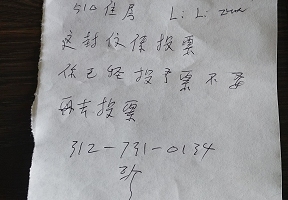 510住房 Li Li
这封信使投票
你已经投了票不要
再去投票
312-731-0134